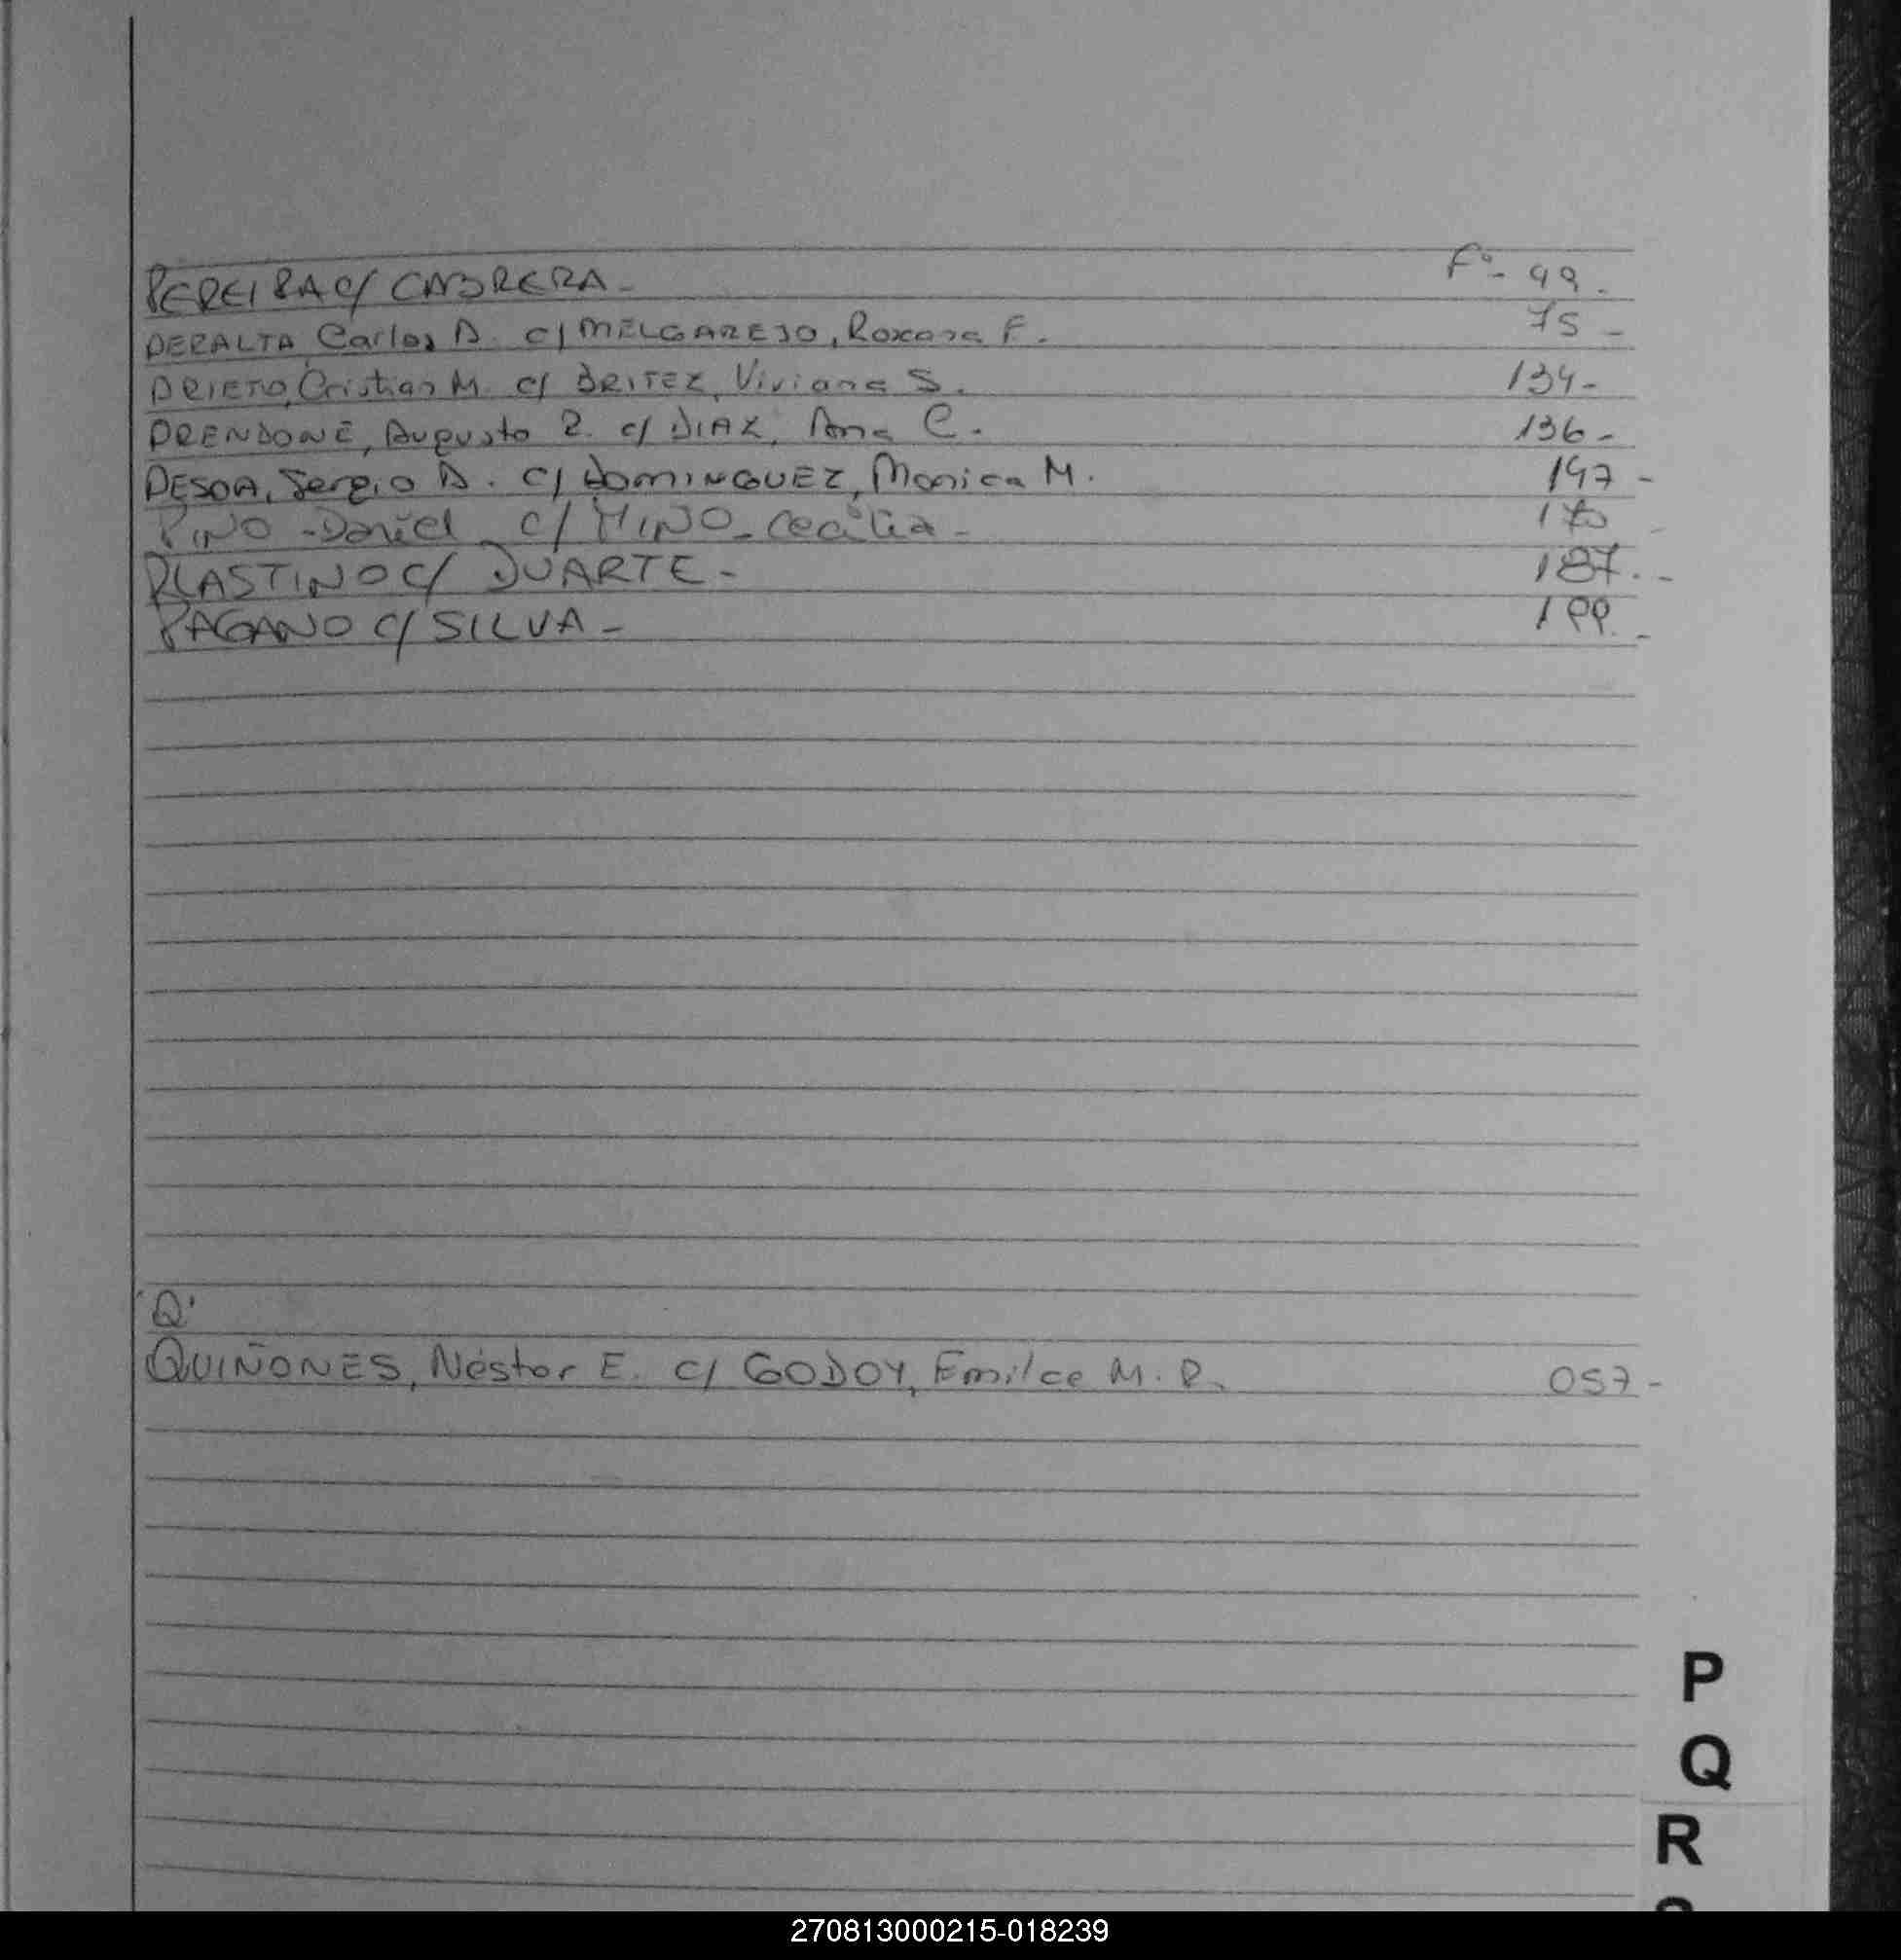 PEREIRA c/ CABRERA - Fº- 49.
PERALTA, Carlos A. c/ MELGAREJO, Roxana F. 75 -
PRIETO, Cristian M. c/ BRITEZ, Viviana S. 134-
PRENDONE, Augusto R. c/ DIAZ, Ana C. 136-
PESOA, Sergio A. c/ DOMINGUEZ, Monica M. 147 -
PINO - Daniel c/ MIÑO - Cecilia - 170
PLASTINO c/ DUARTE - 187.-
PAGANO c/ SILVA - 199.-
"Q"
QUIÑONES, Néstor E. c/ GODOY, Emilce M. R. 057-
P
Q
R
270813000215-018239